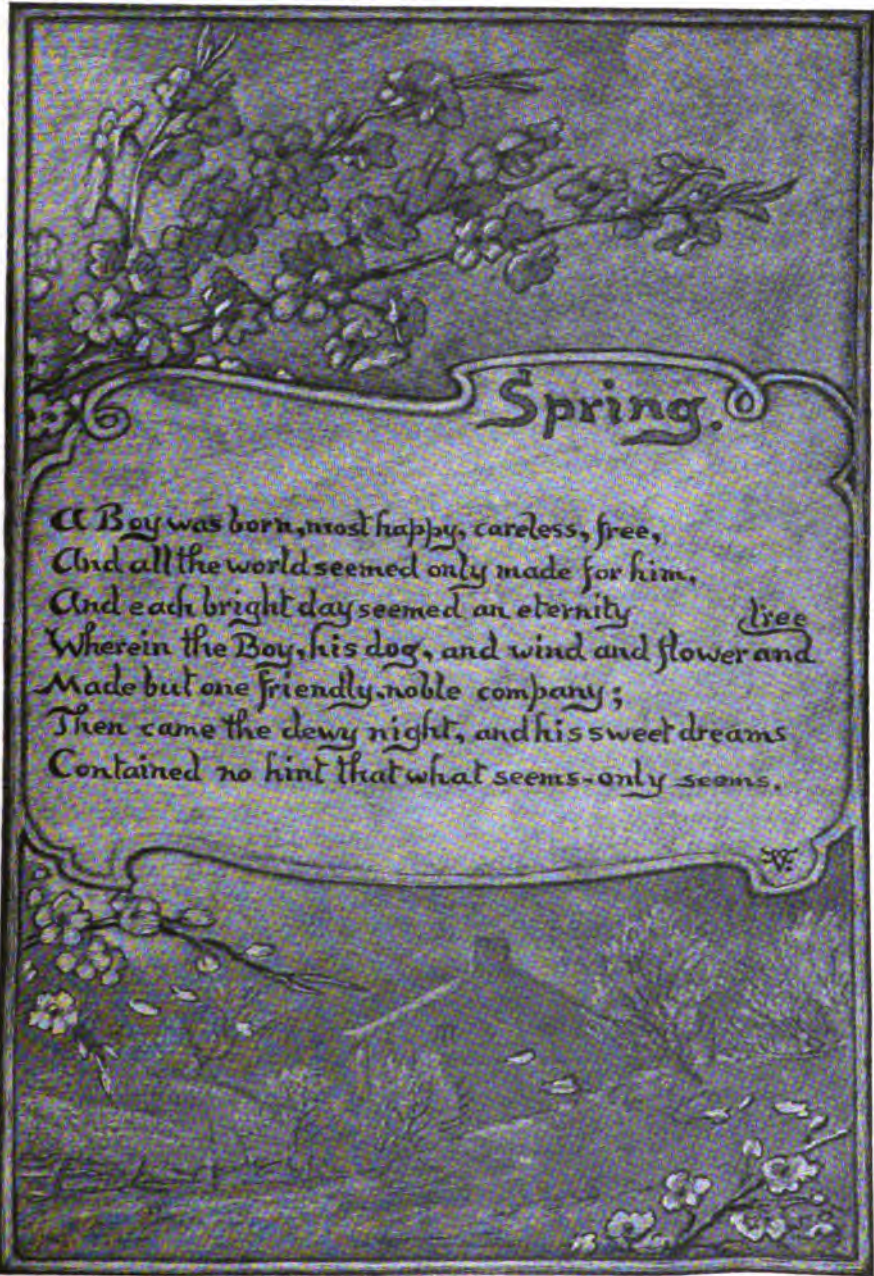 Spring.
A Boy was born, most happy, careless, free,
And all the world seemed only made for him,
And each bright day seemed an eternity
Wherein the Boy, his dog, and wind and flower and tree
Made but one friendly, noble company;
Then came the dewy night, and his sweet dreams
Contained no hint that what seems-only seems.